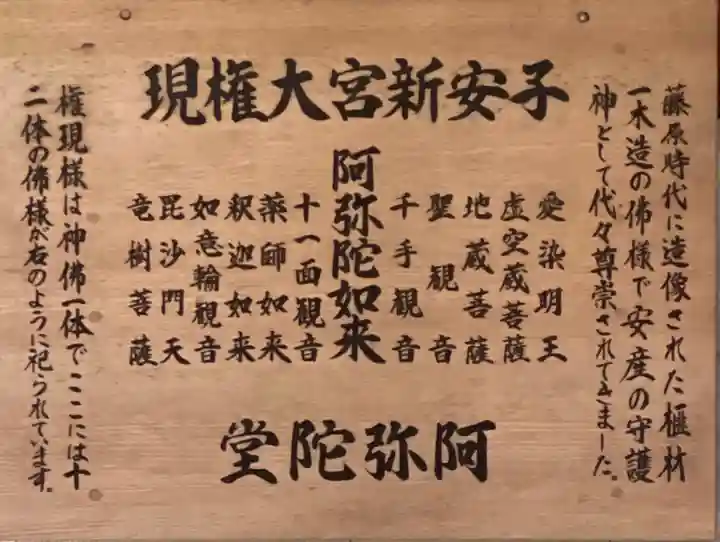 子安新宮大権現
藤原時代に造像された榧材
一木造の佛様で安産の守護
神として代々尊崇されてきました。
愛染明王
虚空蔵菩薩
地蔵菩薩
聖観音
千手観音
阿弥陀如来
十一面観音
薬師如来
釈迦如来
如意輪観音
毘沙門天
竜樹菩薩
権現様は神佛一体でここには十
二体の佛様が右のように祀られています。
阿弥陀堂